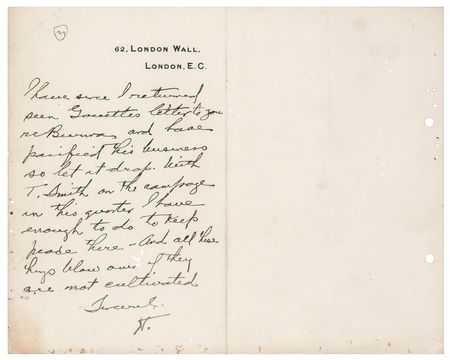 62, LONDON WALL,
LONDON, E.C.
I have since I returned
seen letter to you
re Burma and have
pacified his business
so let it drop. With
T. Smith on the rampage
in this quarter I have
enough to do to keep
peace there - And all these
things blow over if they
are not cultivated
Sincerely
H.